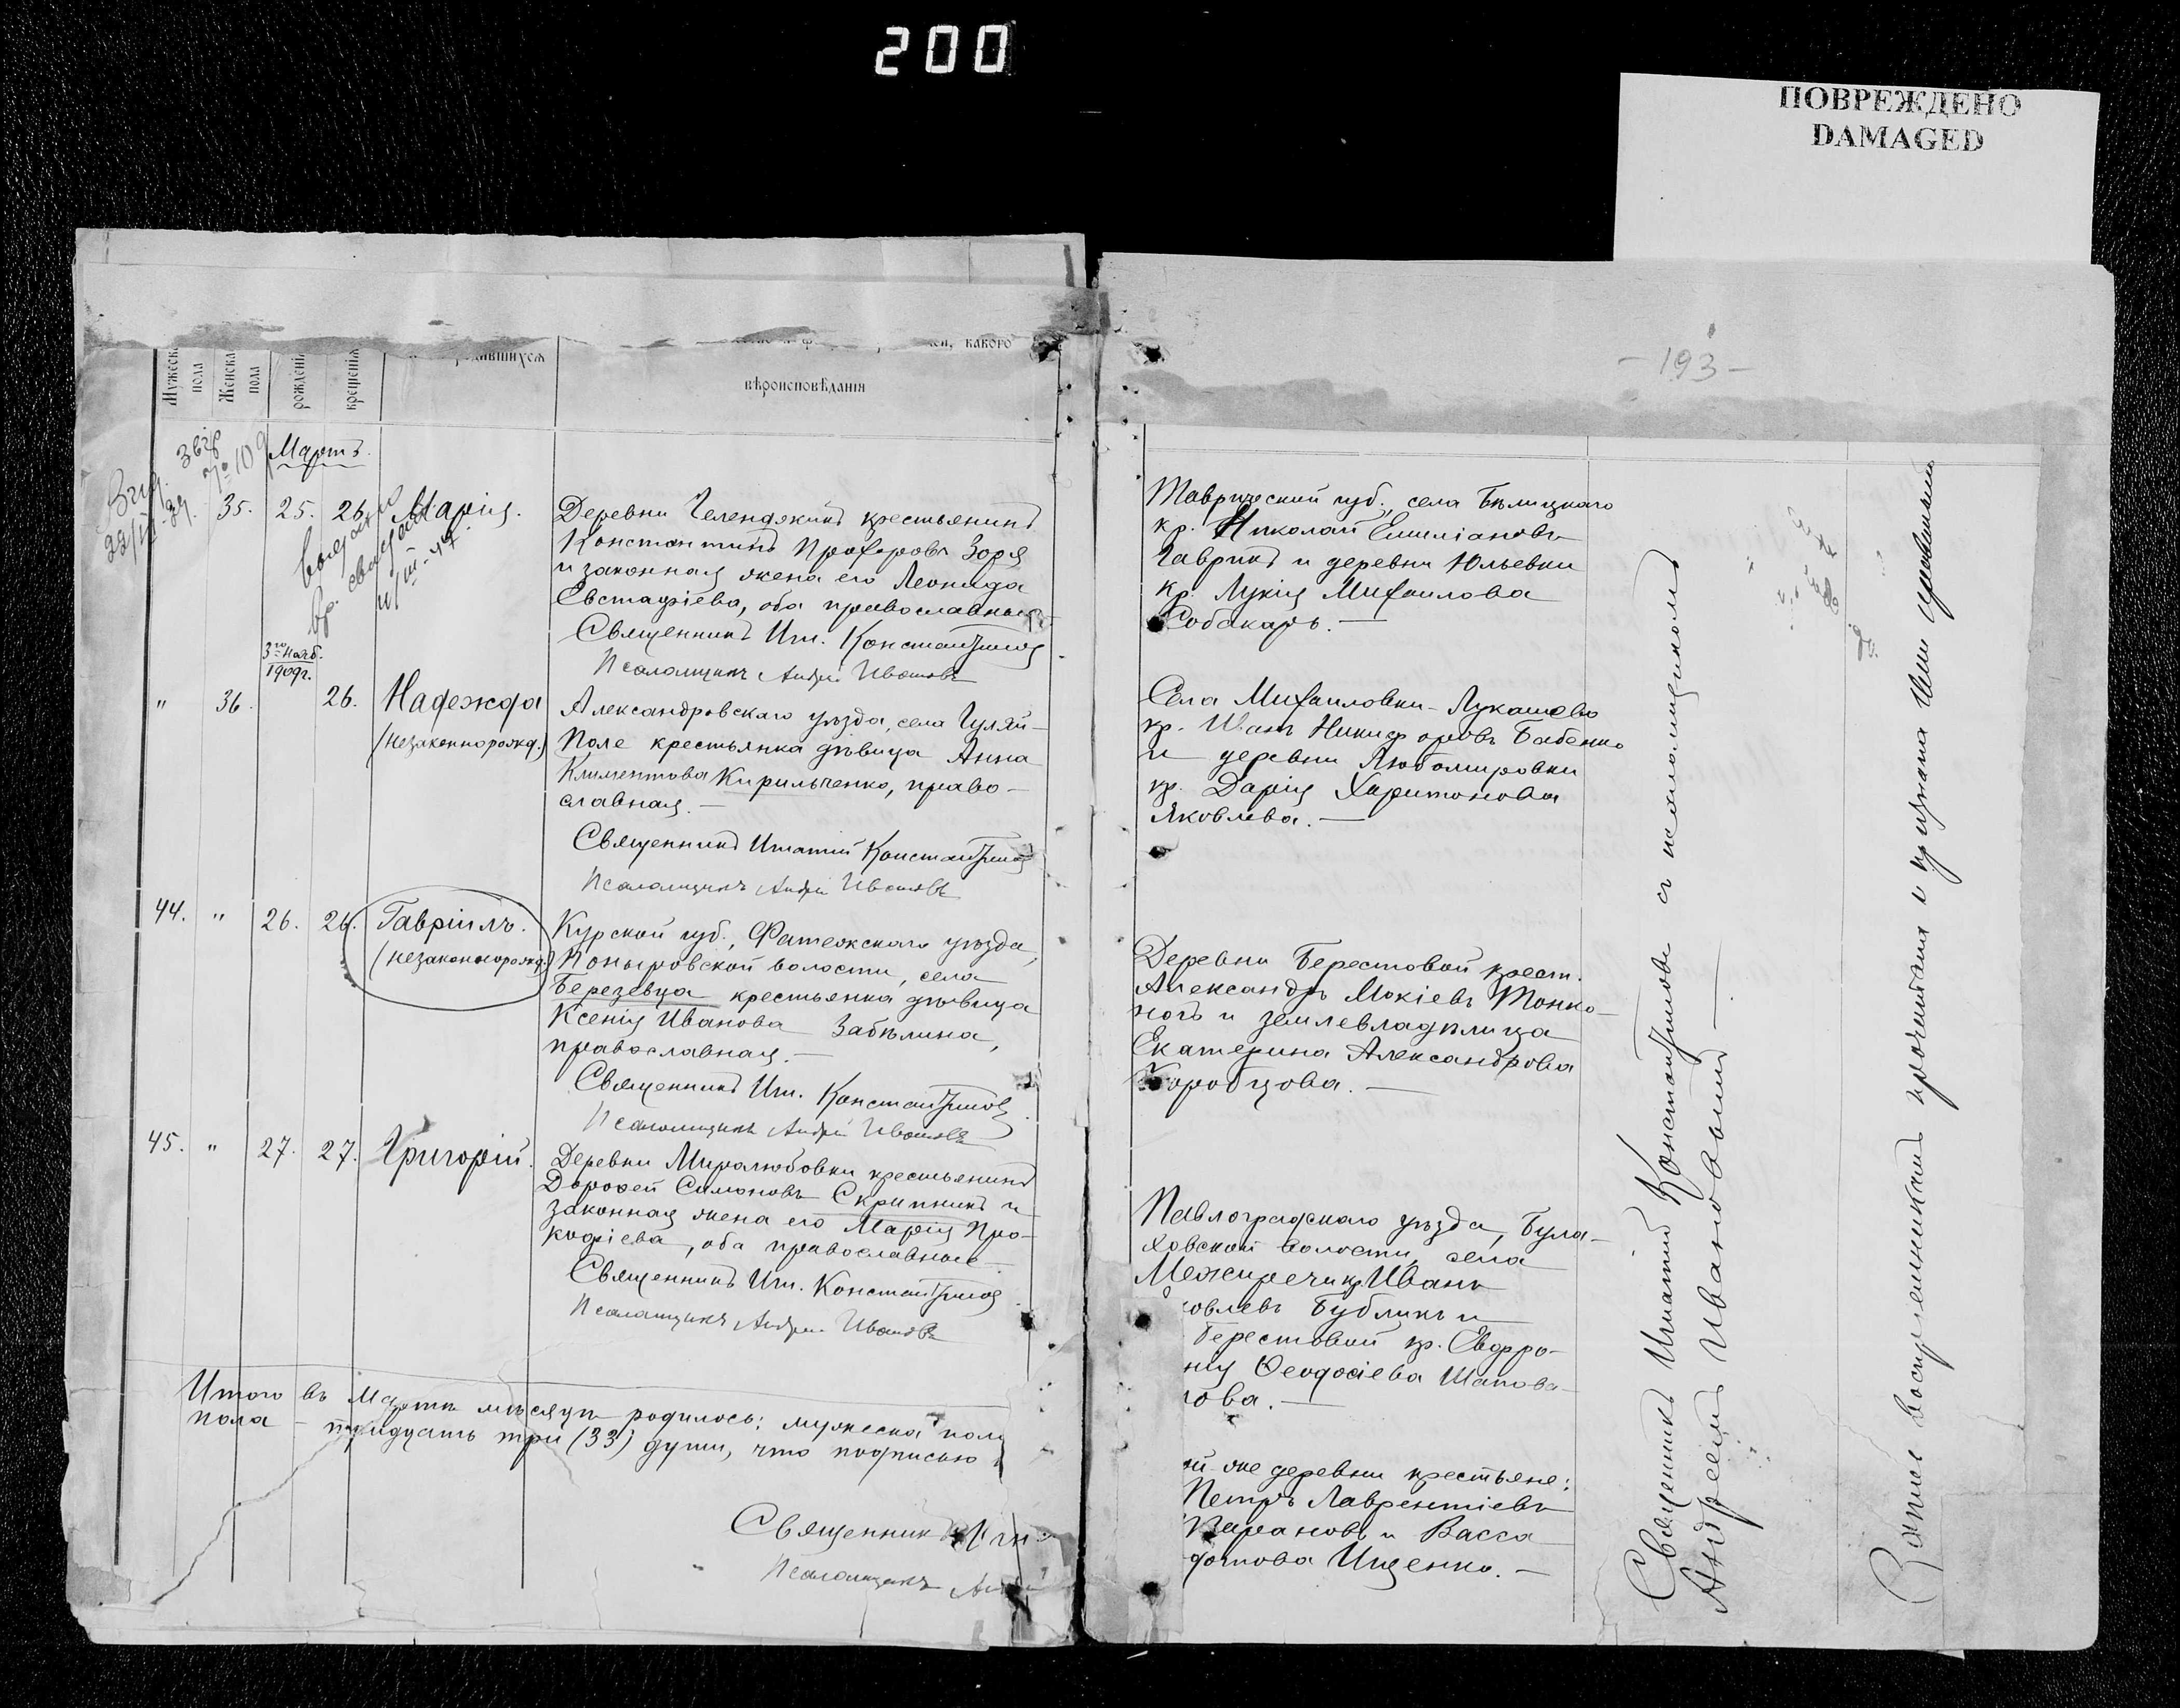 200
ПОВРЕЖДЕНО
DAMAGED
Мужеска
пола
Женска
пола
рожденія
крещенія
какого
вѣроисповѣданія
Мартъ.
35. 25. 26. Марія.
Деревни Геленджикъ крестьянинъ
Константинъ Прохоровъ Зоря
и законная жена его Леонида
Евстафіева, оба православные
Священникъ Игн. Константиновъ
Псаломщикъ Андрей Ивановъ
3го нояб.
1909г.
" 36. 26. Надежда
(незаконнорожд.)
Александровскаго уѣзда, села Гуляй-
Поле крестьянка дѣвица Анна
Климентова Кирильченко, право-
славная. —
Священникъ Игнатій Константиновъ
Псаломщикъ Андрей Ивановъ
44. " 26. 26. Гавріилъ.
(незаконнорожд.)
Курской губ., Фатежскаго уѣзда,
Поныровской волости, села
Березевца крестьянка дѣвица
Ксенія Иванова Забѣлина,
православная. —
Священникъ Игн. Константиновъ
Псаломщикъ Андрей Ивановъ
45. " 27. 27. Григорій.
Деревни Миролюбовки крестьянинъ
Дорофей Симоновъ Скрипникъ и
законная жена его Марія Про-
кофіева, оба православные
Священникъ Игн. Константиновъ
Псаломщикъ Андрей Ивановъ
Итого въ Мартѣ мѣсяцѣ родилось: мужеска пола
пола — тридцать три (33) души, что подписью
Священникъ Игн
Псаломщикъ Андрей
- 193 -
Таврической губ., села Бѣлицкаго
кр. Николай Емиліановъ
Гавринъ и деревни Юльевки
кр. Лукія Михаилова
Собакарь. —
Села Михаиловки-Лукашево
кр. Иванъ Никифоровъ Бабенко
и деревни Любомировки
кр. Дарія Харитонова
Яковлева. —
Деревни Берестовой крест.
Александръ Мокіевъ Тонко-
ногъ и землевладѣлица
Екатерина Александрова
Коробцова. —
Павлоградскаго уѣзда, Була-
ховской волости, села
Межиречи кр. Иванъ
овлевъ Бубликъ и
Берестовой кр. Евфро-
нія Ѳеодосіева Шапова-
лова. —
ой-же деревни крестьяне:
Петръ Лаврентіевъ
Тарановъ и Васса
дотова Ищенко. —
Священникъ Игнатій Константиновъ съ псаломщикомъ
Андреемъ Ивановымъ —